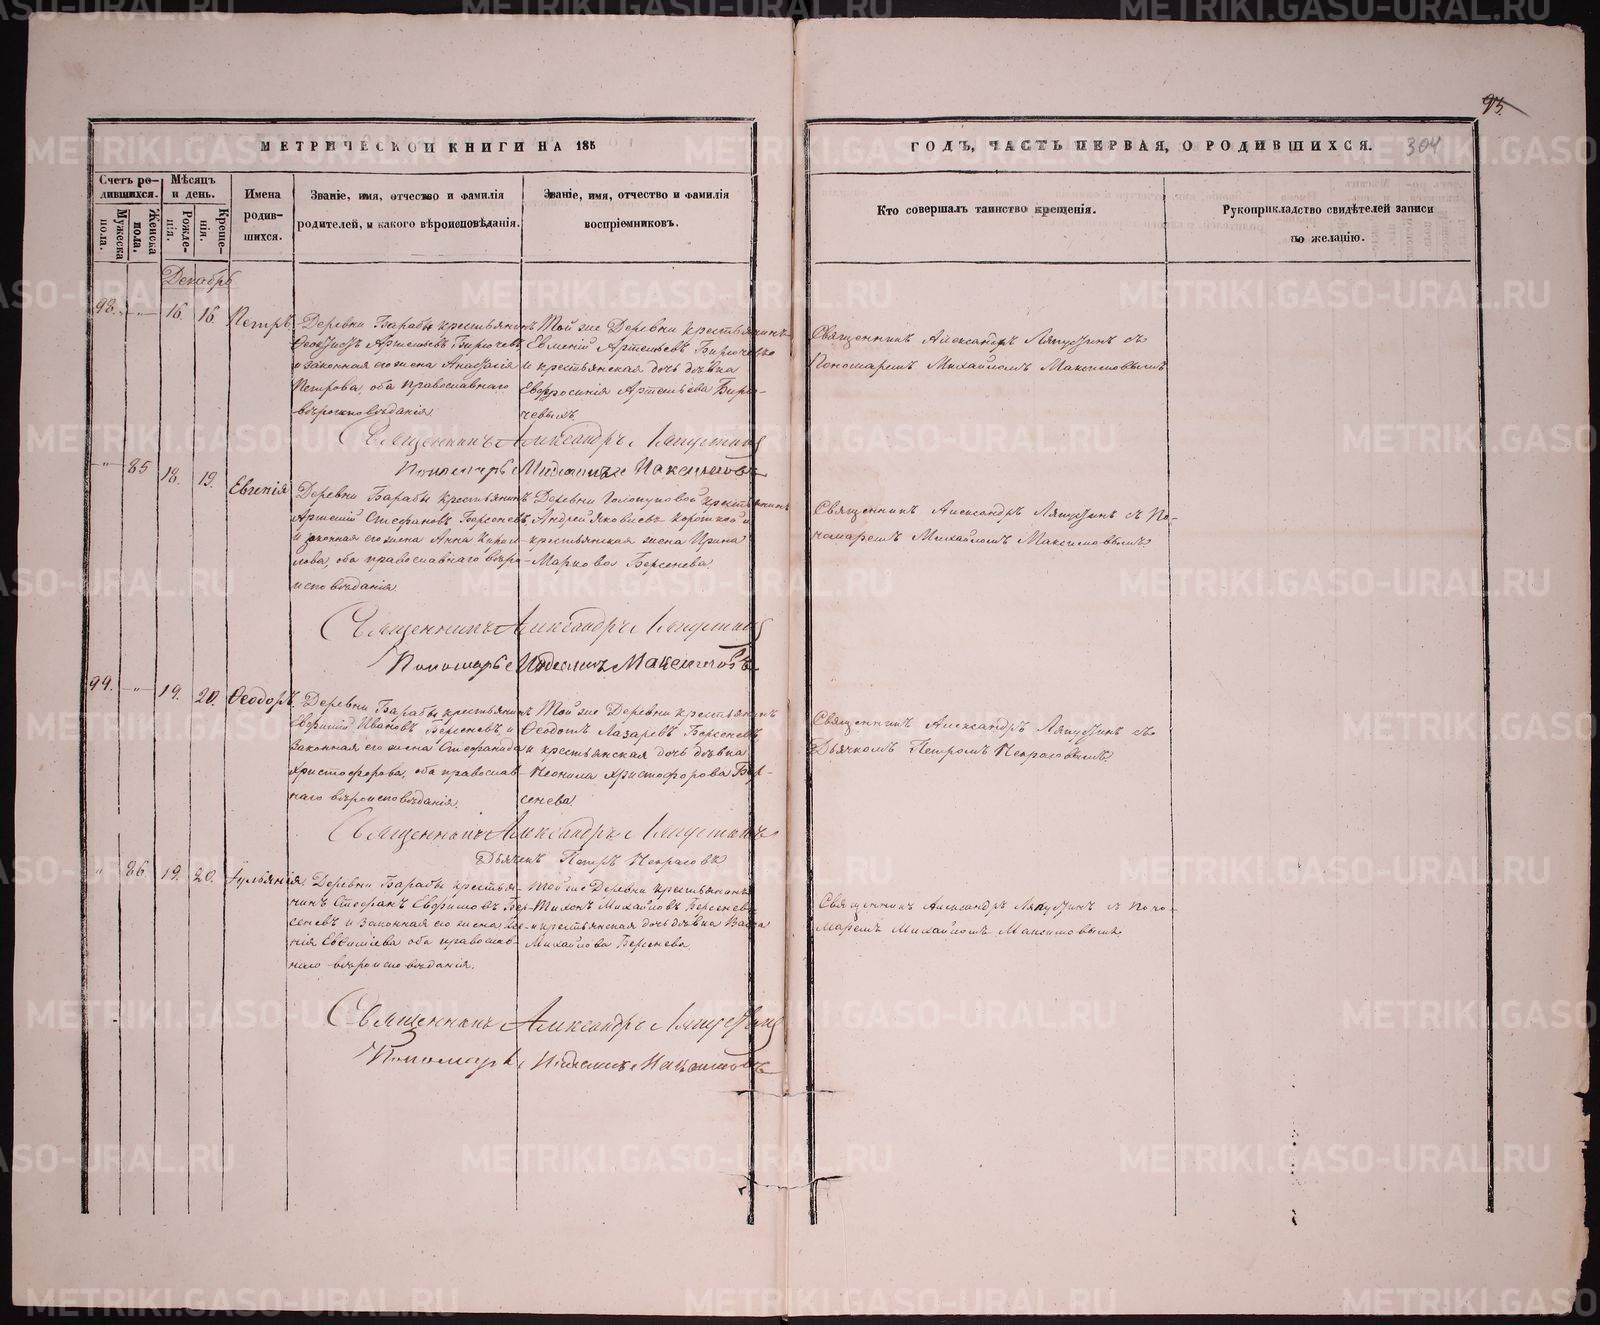 93.
304
МЕТРИЧЕСКОЙ КНИГИ НА 185
ГОДЪ, ЧАСТЬ ПЕРВАЯ, О РОДИВШИХСЯ.
Счетъ ро-
дившихся.
Мужеска
пола.
Женска
пола.
Мѣсяцъ
и день.
Рожде-
нія.
Креще-
нія.
Имена
родив-
шихся.
Званіе, имя, отчество и фамилія
родителей, и какого вѣроисповѣданія.
Званіе, имя, отчество и фамилія
воспріемниковъ.
Кто совершалъ таинство крещенія.
Рукоприкладство свидѣтелей записи
по желанію.
Декабрь
98. — „ — 16. 16. Петръ.
Деревни Барабы крестьянинъ
Артемьевъ Бирючевъ
и законная его жена Анастасія
Петрова, оба православнаго
вѣроисповѣданія.
Той же Деревни крестьянинъ
Евмений Артемьевъ Бирючевъ
и крестьянская дочь дѣвка
Евфросинія Артемьева Бирю-
чевыхъ
Священникъ Александръ Ляпустинъ съ
Пономаремъ Михайломъ Максимовымъ
Священникъ Александръ Ляпустинъ
Пономарь Михаилъ Максимовъ
— „ — 85 18. 19. Евгенія
Деревни Барабы крестьянинъ
Арсеній Стефановъ Берсеневъ
и законная его жена Анна Кирил-
лова, оба православнаго вѣро-
исповѣданія
Деревни крестьянинъ
Андрей Яковлевъ Короткой и
крестьянская жена Ирина
Маркова Берсенева.
Священникъ Александръ Ляпустинъ съ По-
номаремъ Михайломъ Максимовымъ
Священникъ Александръ Ляпустинъ
Пономарь Михаилъ Максимовъ
99. — „ — 19. 20. Ѳеодоръ.
Деревни Барабы крестьянинъ
Евфимій Ивановъ Берсеневъ, и
законная его жена Стефанида
Христофорова, оба православ-
наго вѣроисповѣданія.
Той же Деревни крестьянинъ
Ѳеодотъ Лазаревъ Берсеневъ,
и крестьянская дочь дѣвка
Неонила Христофорова Бер-
сенева
Священникъ Александръ Ляпустинъ съ
Дьячкомъ Петромъ Некрасовымъ
Священникъ Александръ Ляпустинъ
Дьячекъ Петръ Некрасовъ
„ 86. 19. 20. Іуліянія
Деревни Барабы крестья-
нинъ Стефанъ Евфимовъ Бер-
сеневъ и законная его жена
Евсигіева оба православ-
наго вѣроисповѣданія.
Той же Деревни крестьянинъ
Тихонъ Михайловъ Берсеневъ
и крестьянская дочь дѣвка
Михайлова Берсенева.
Священникъ Александръ Ляпустинъ съ Поно-
маремъ Михайломъ Максимовымъ
Священникъ Александръ Ляпустинъ
Пономарь Михаилъ Максимовъ
METRIKI.GASO-URAL.RU